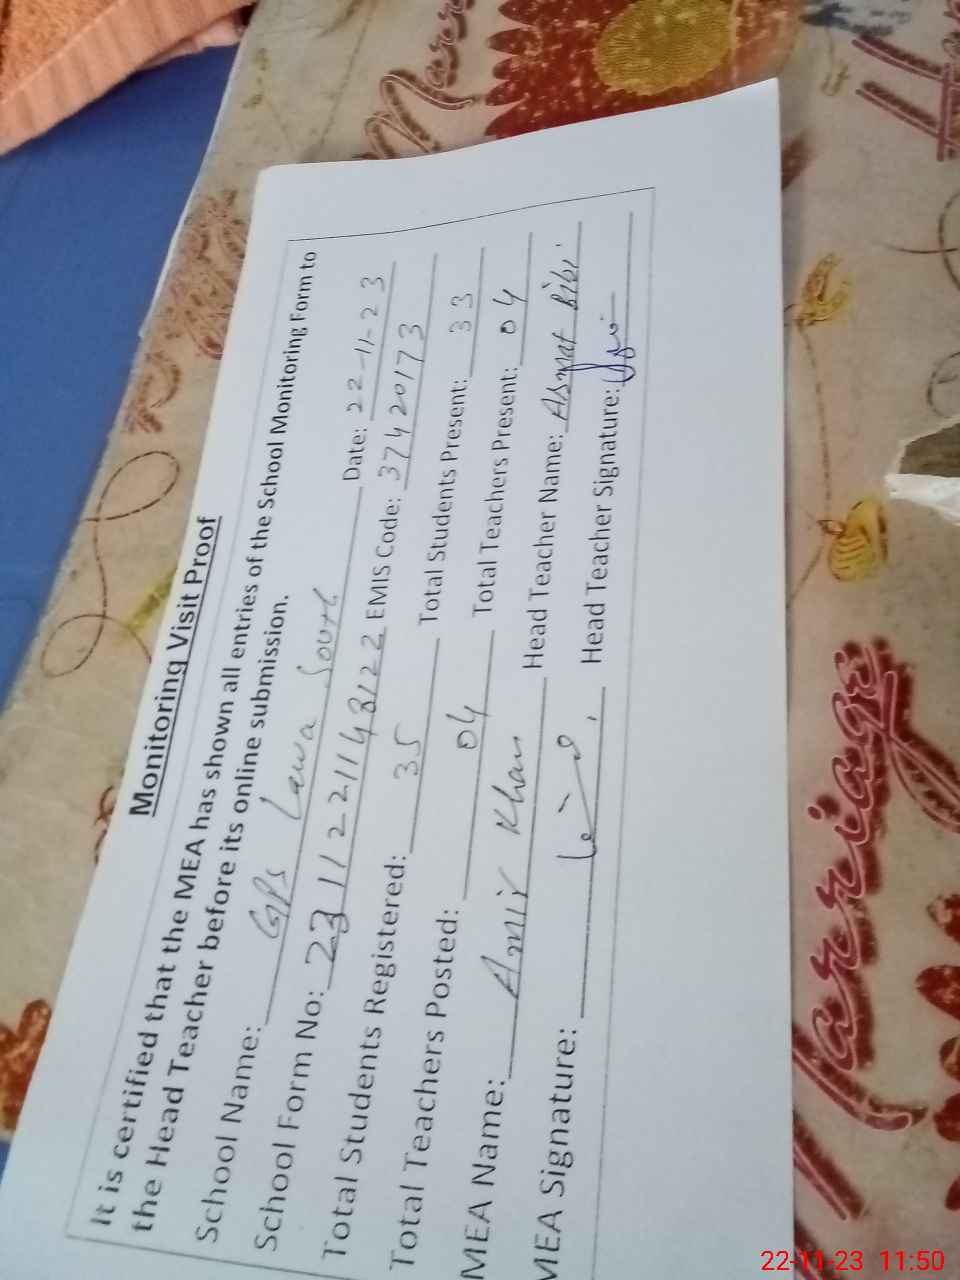 Monitoring Visit Proof
It is certified that the MEA has shown all entries of the School Monitoring Form to
the Head Teacher before its online submission.
School Name: GPS Lawa South Date: 22-11-23
School Form No: 2311221148122 EMIS Code: 37420173
Total Students Registered: 35 Total Students Present: 33
Total Teachers Posted: 04 Total Teachers Present: 04
MEA Name: Amir Khan Head Teacher Name: Asmat Bibi
MEA Signature: Head Teacher Signature:
Marriage
22-11-23 11:50